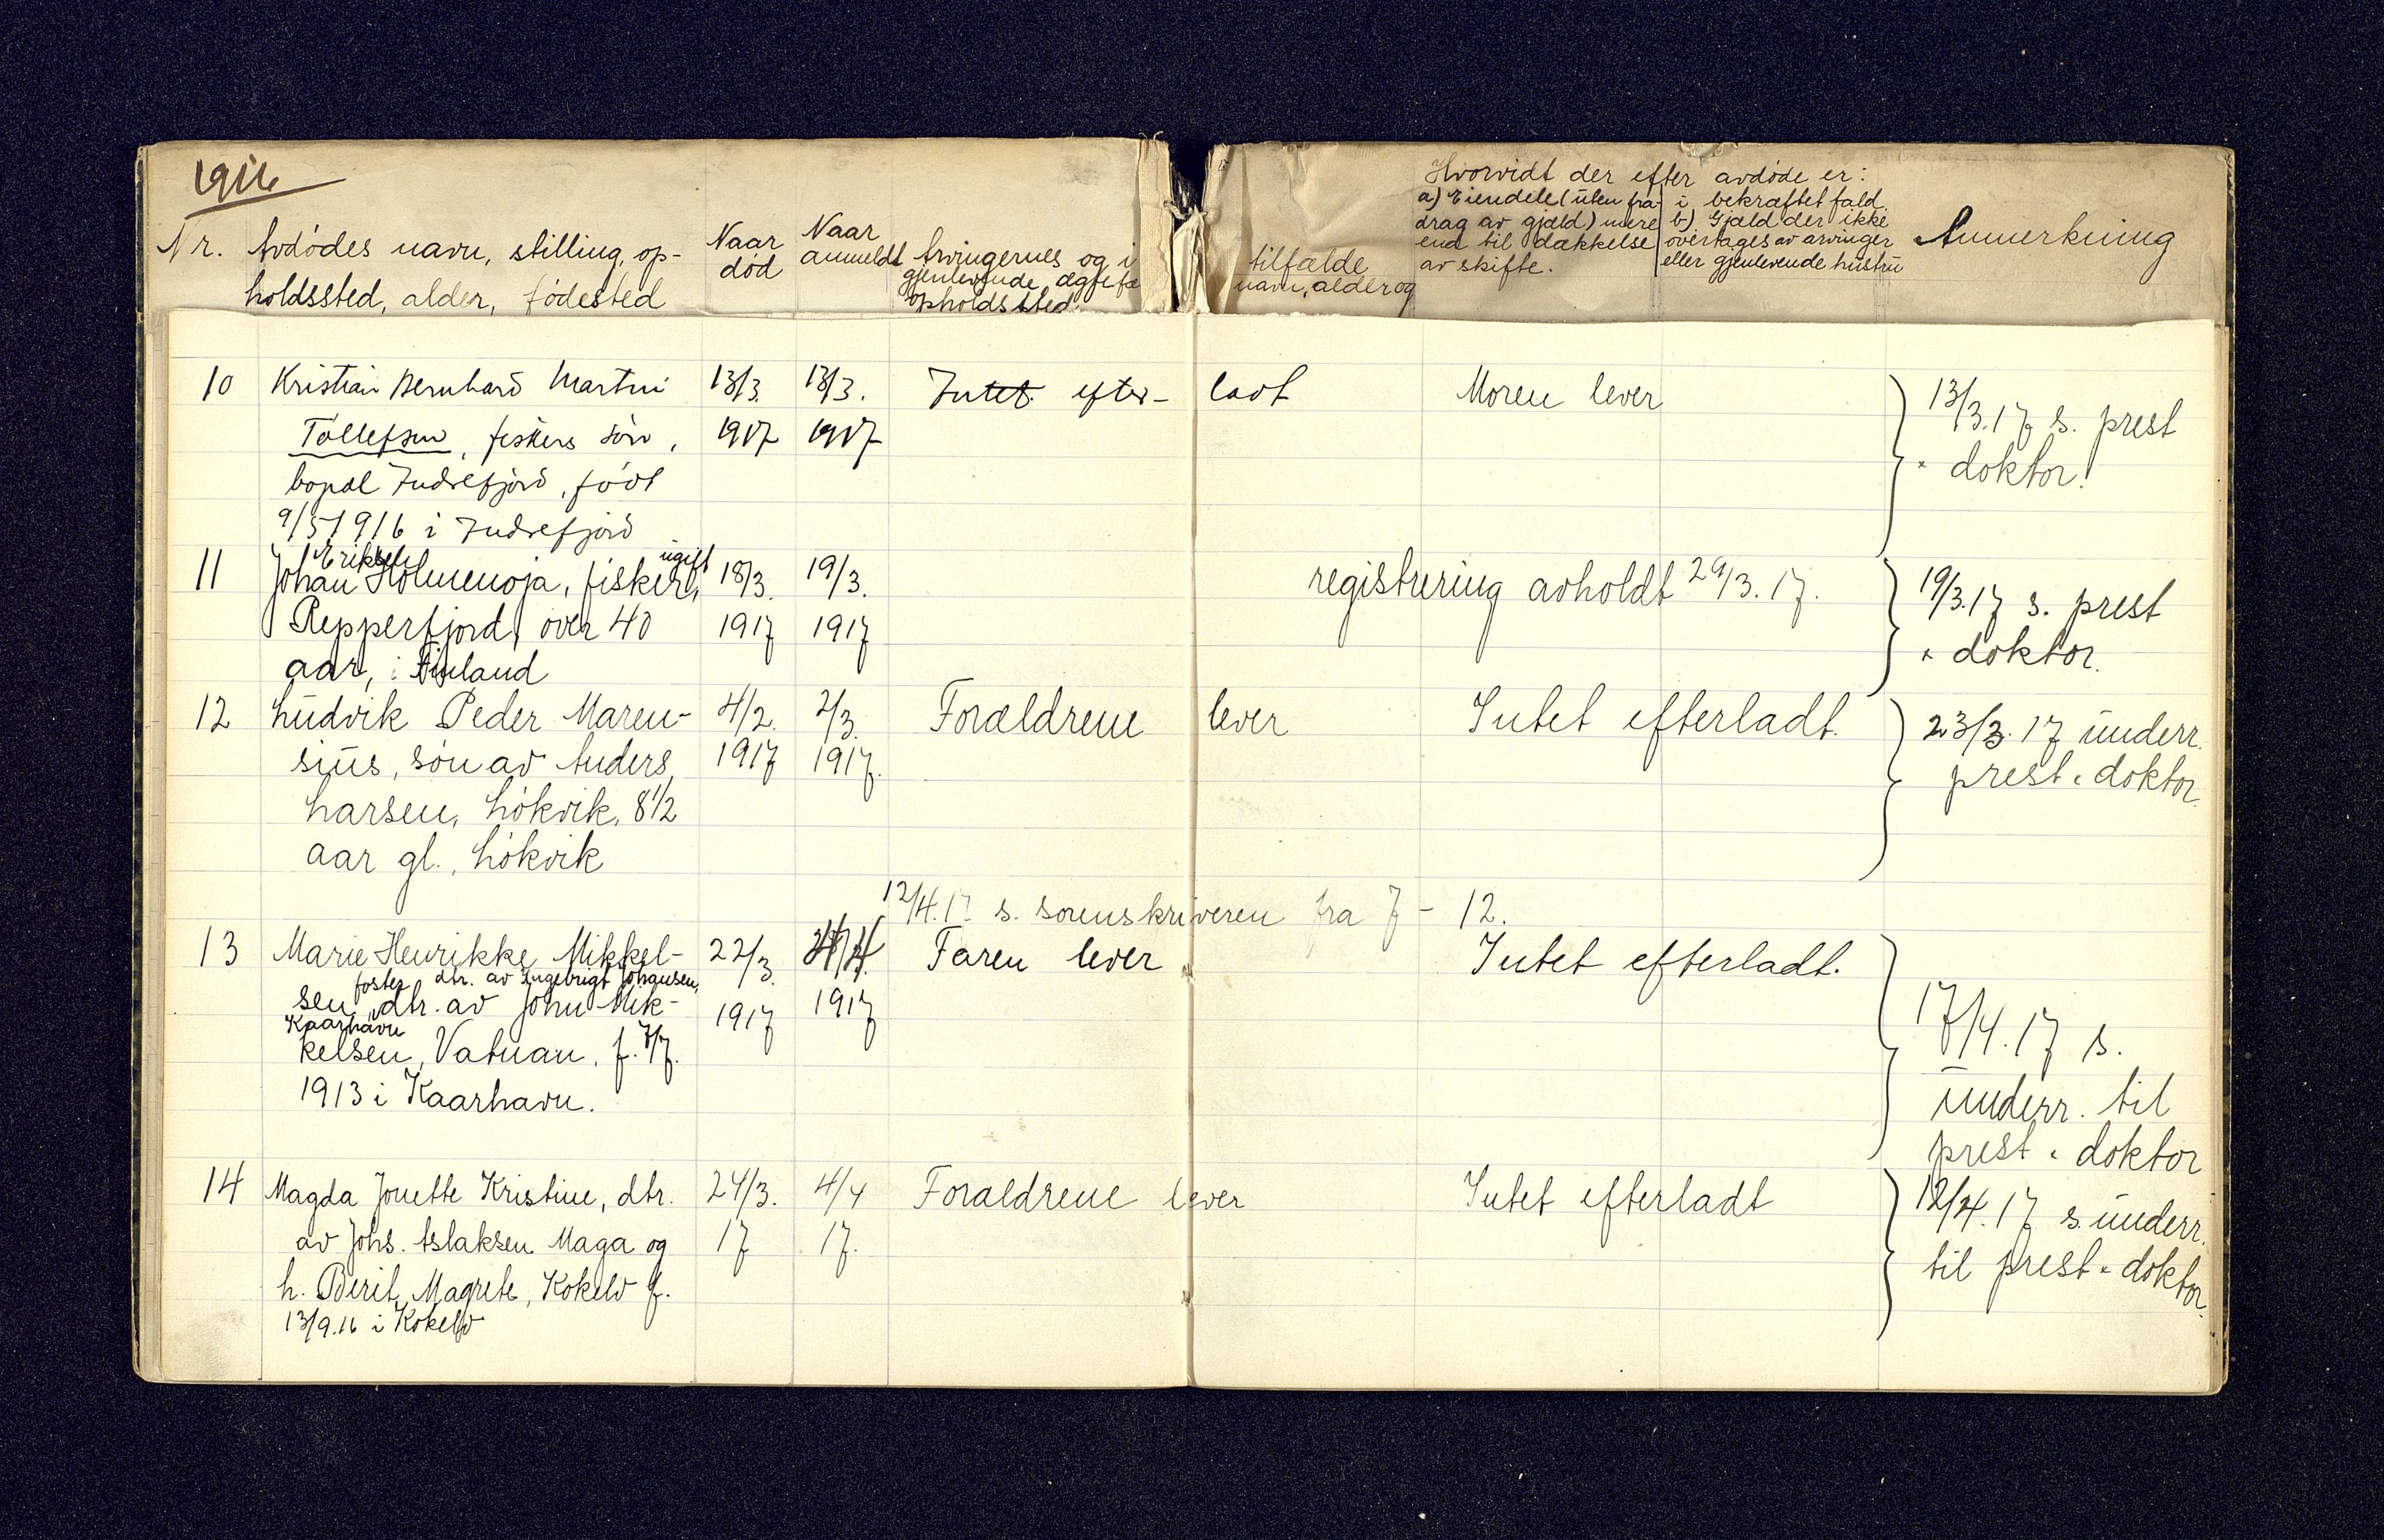 1916
Nr. Avdødes navn, stilling, op-
holdssted, alder, fødested
Naar
død
Naar
anmeldt
Arvingernes og i
gjenlevende ægtefæ
opholdssted
tilfælde
navn, alder og
Hvorvidt der efter avdøde er:
a) Eiendele (uten fra-
drag av gjæld) mere
end til dækkelse
av skifte.
i bekræftet fald
b) Gjæld der ikke
overtages av arvinger
eller gjenlevende hustru
Anmerkning
10 Kristian Bernhard Martin 13/3. 13/3. Intet efter- ladt Moren lever 13/3.17 s. prest
Tollefsen, fiskers søn, 1917 1917 " doktor.
bopæl Indrefjord, født
9/5 1916 i Indrefjord
Eriksen ugift
11 Johan Holmenoja, fisker, 18/3. 19/3. registrering avholdt 29/3.17. 19/3.17 s. prest
Repperfjord, over 40 1917 1917 " doktor.
aar, i Finland
12 Ludvik Peder Maren- 4/2. 2/3. Forældrene lever Intet efterladt. 23/3.17 underr.
sius, søn av Anders 1917 1917. prest " doktor.
Larsen, Løkvik, 8 1/2
aar gl., Løkvik
12/4.17 s. sorenskriveren fra 7 - 12.
13 Marie Henrikke Mikkel- 22/3. 4/4. Faren lever Intet efterladt.
foster dtr. av Ingebrigt Johansen,
sen, dtr. av John Mik- 1917 1917 17/4.17 s.
Kaarhavn
kelsen, Vatnan, f. 7/7. underr. til
1913 i Kaarhavn. prest " doktor
14 Magda Jonette Kristine, dtr. 24/3. 4/4 Forældrene lever Intet efterladt 12/4.17 s. underr.
av Johs. Aslaksen Maga og 17 17. til prest " doktor.
h. Berit Magrete, Kokelv f.
13/9.16 i Kokelv